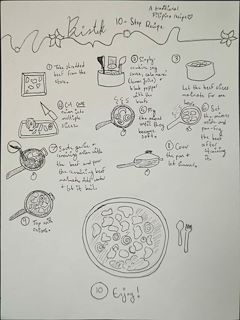 Bistek
10-Step Recipe
A traditional
Filipino recipe
① Take shredded
beef from the
store.
② Simply
combine soy
sauce, calamansi
+ black
pepper
with the
beef
③
Let the beef slices
marinate for one
④ Cut one
onion into
multiple
slices.
⑤ Fry
the onions
until they
become
soft.
⑥ Set
the onions
aside and
pan-fry
the beef
after
draining
it.
⑦ Sauté garlic +
remaining onion with
the beef and pour
the remaining beef
marinade. Add water
+ let it boil.
⑧ Cover
the pan +
let simmer.
⑨
Top with
onions.
⑩ Enjoy!